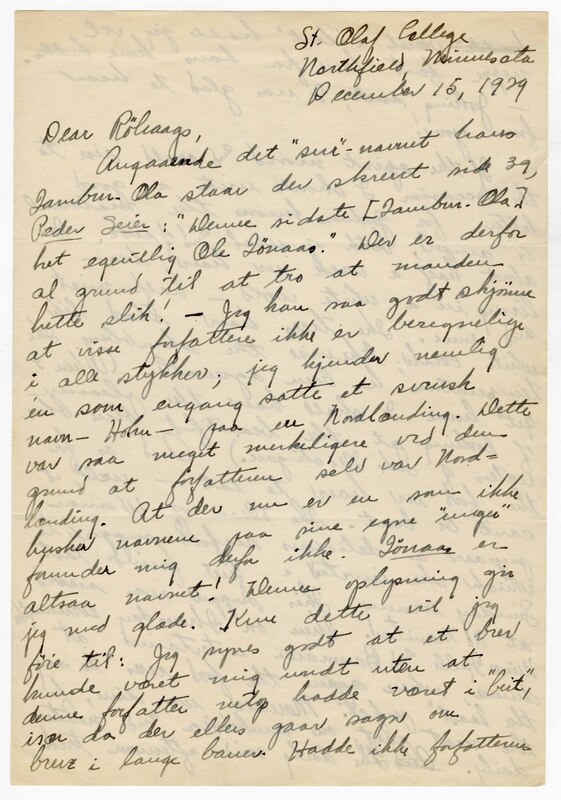 St. Olaf College
Northfield, Minnesota
December 15, 1929
Dear Rölvaags,
Angaaende det "sur"-navnet hans
Tambur-Ola staar der skrevet side 39,
Peder Seier: "Denne sidste [Tambur-Ola]
het egentlig Ole Tönaas." Der er derfor
al grund til at tro at manden
hette slik! — Jeg kan saa godt skjönne
at visse forfattere ikke er beregnelige
i alle stykker; jeg kjender nemlig
en som engang satte et svensk
navn — Holm — paa en Nordlending. Dette
var saa meget merkeligere ved den
grund at forfatteren selv var Nord=
lending. At der nu er en som ikke
husker navnene paa sine egne "unger"
forunder mig derfor ikke. Tönaas er
altsaa navnet! Denne oplysning gir
jeg med glæde. Kun dette vil jeg
föie til: Jeg synes godt at et brev
kunde været mig undt uten at
denne forfatter hadde været i "beit",
især da der ellers gaar sagn om
brev i lange baner. Hadde ikke forfatteren